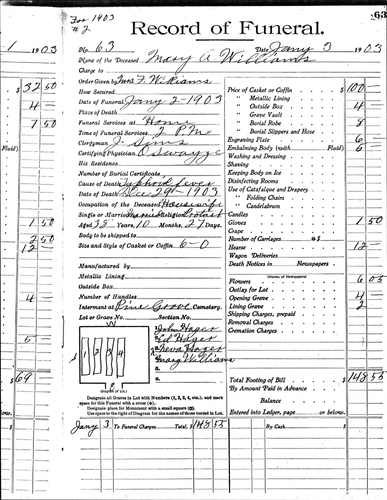 For 1903
#2
63
Record of Funeral.
1 1903
No. 63 Date Jany 3 1903
Name of the Deceased Mary A Williams
Charge to
Order Given by Mrs F. Williams
How Secured
Date of Funeral Jany 2-1903
Place of Death
Funeral Services at Home
Time of Funeral Services 2 P.M.
Clergyman J. Sims
Certifying Physician
His Residence
Number of Burial Certificate,
Cause of Death Typhoid fever
Date of Death Dec 29th 1903
Occupation of the Deceased Housewife
Single or Married Religion
Aged 38 Years, 10 Months, 27 Days
Body to be shipped to
Size and Style of Casket or Coffin 6-0
Manufactured by
Metallic Lining
Outside Box
Number of Handles
Interment at Pine Grove Cemetery.
Lot or Grave No. Section No.
1 2 3 4
John Hager
Ed Hager
Hager
Mary Williams
Designate all Graves in Lot with Numbers (1, 2, 3, 4, etc.), and mark
space for this Funeral with a cross (+).
Designate place for Monument with a small square (□).
Use space to the right of Diagram for the names of those buried in Lot.
Price of Casket or Coffin $ 100
" Metallic Lining
" Outside Box 4
" Grave Vault
" Burial Robe 8
" Burial Slippers and Hose
Engraving Plate 6
Embalming Body (with Fluid) 6
Washing and Dressing
Shaving
Keeping Body on Ice
Disinfecting Rooms
Use of Catafalque and Drapery
" Folding Chairs
" Candelabrum
Candles
Gloves 1 50
Crape
Number of Carriages @ $
Hearse 12
Wagon Deliveries
Death Notices in Newspapers
(Names of Newspapers)
Flowers 6 05
Outlay for Lot
Opening Grave 4
Lining Grave 2
Shipping Charges, prepaid
Removal Charges
Cremation Charges
Total Footing of Bill $ 148 55
By Amount Paid in Advance
Balance
Entered into Ledger, page or below.
Jany 3 To Funeral Charges Total, $ 148 55 By Cash $
$ 32 50
4
7 50
Fluid)
1 50
2 50
12
4
$ 69
below.
$